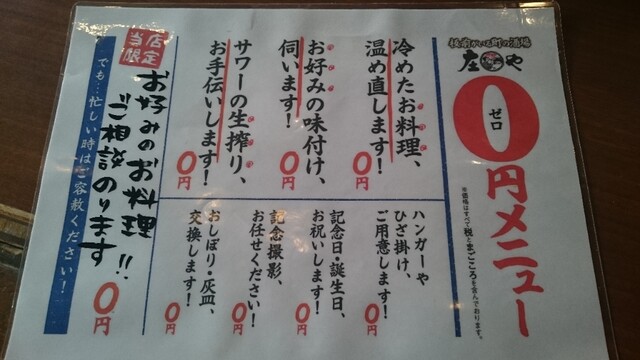 板前がいる町の酒場
庄や
0円メニュー
ゼロ
※価格はすべて税とまごころを含んでおります。
冷めたお料理、
温め直します!
0円
お好みの味付け、
伺います!
0円
サワーの生搾り、
お手伝いします!
0円
ハンガーや
ひざ掛け、
ご用意します!
0円
記念日・誕生日、
お祝いします!
0円
記念撮影、
お任せください!
0円
おしぼり・灰皿、
交換します!
0円
当店限定
お好みのお料理
ご相談のります!!
0円
でも…忙しい時はご容赦ください!